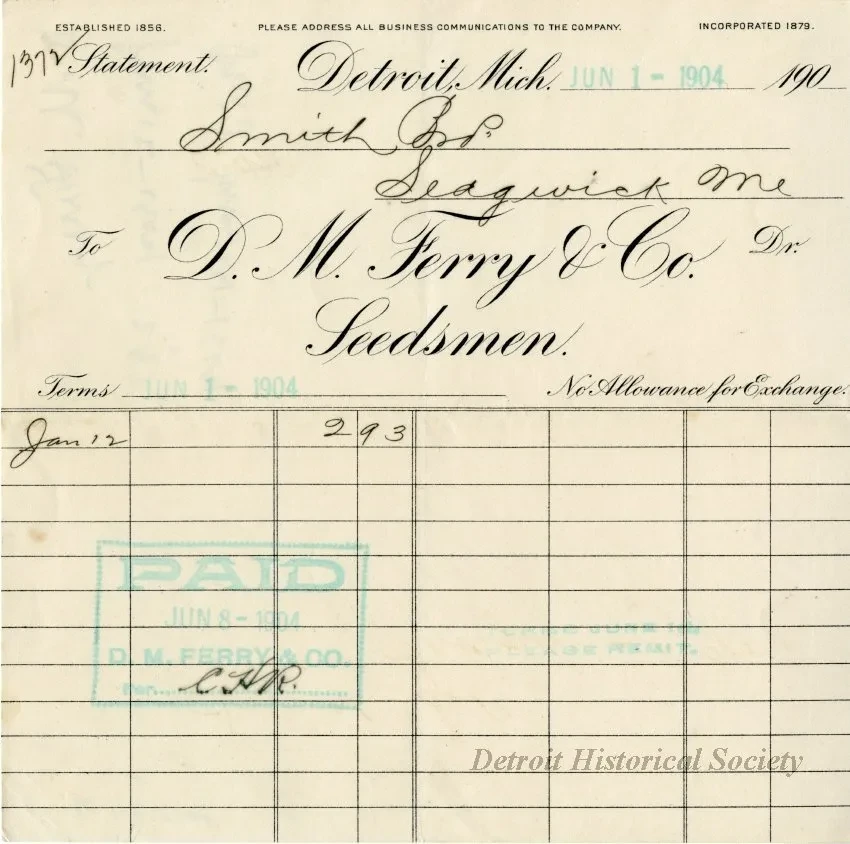 ESTABLISHED 1856. PLEASE ADDRESS ALL BUSINESS COMMUNICATIONS TO THE COMPANY. INCORPORATED 1879.
1372 Statement. Detroit, Mich. JUN 1 - 1904 190
Smith Bro.
Sedgwick Me
To D. M. Ferry & Co. Dr.
Seedsmen.
Terms JUN 1 - 1904 No Allowance for Exchange.
Jan 12 2 93
PAID
JUN 8 - 1904
D. M. FERRY & CO.
Per C.H.R.
PLEASE REMIT.
Detroit Historical Society